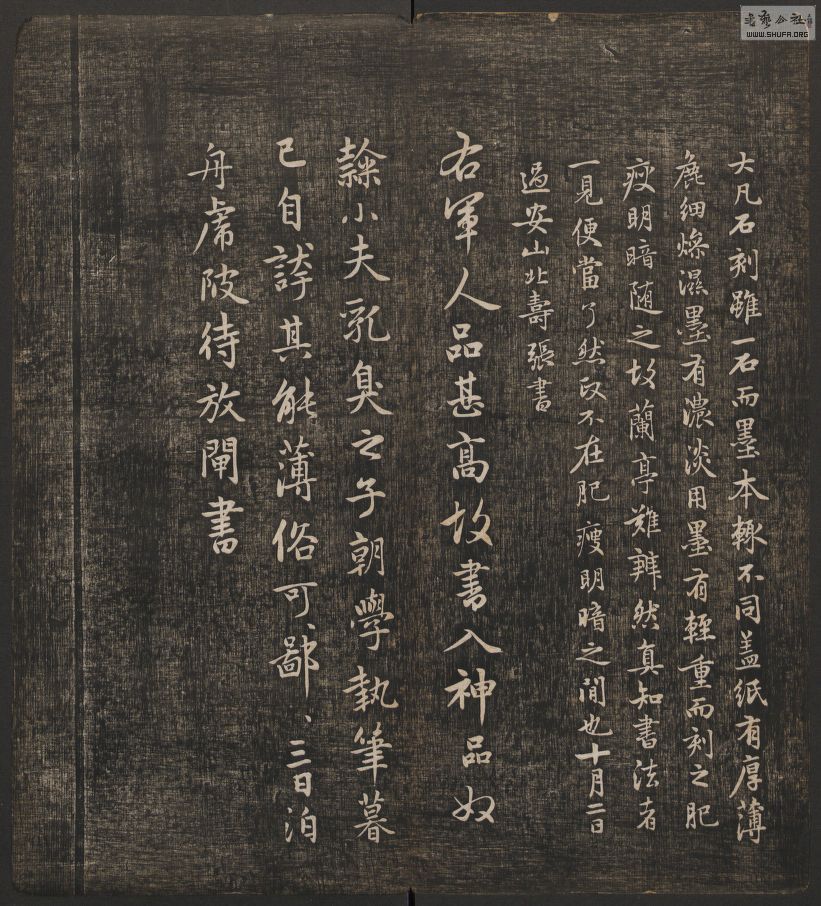 大凡石刻雖一石而墨本輙不同盖紙有厚薄
麁細燥濕墨有濃淡用墨有輕重而刻之肥
瘦明暗随之故蘭亭難辨然真知書法者
一見便當了然政不在肥瘦明暗之間也十月二日
過安山北壽張書
右軍人品甚高故書入神品奴
隷小夫乳臭之子朝學執筆暮
已自誇其能薄俗可鄙、三日泊
舟虎陂待放閘書
書藝公社
WWW.SHUFA.ORG